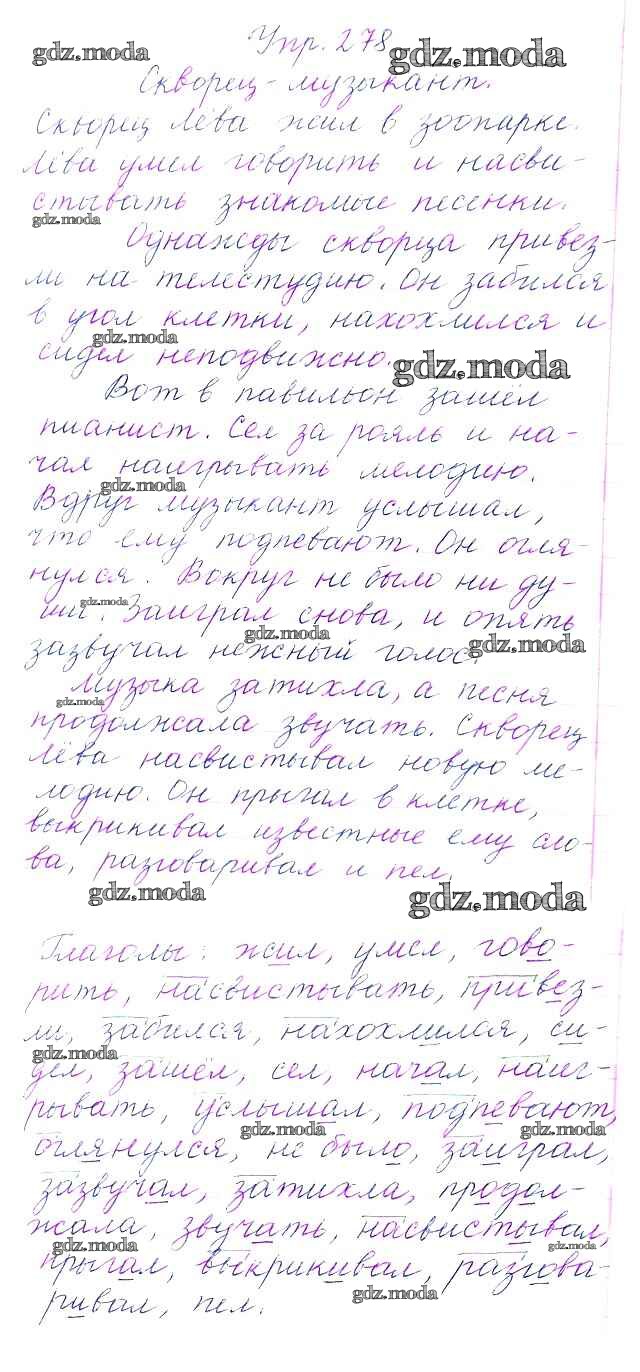 Упр. 278
gdz.moda gdz.moda
Скворец-музыкант.
Скворец Лёва жил в зоопарке.
Лёва умел говорить и насви-
стывать знакомые песенки.
gdz.moda
Однажды скворца привез-
ли на телестудию. Он забился
в угол клетки, нахохлился и
gdz.moda
сидел неподвижно.
gdz.moda
Вот в павильон зашёл
пианист. Сел за рояль и на-
чал наигрывать мелодию.
gdz.moda
Вдруг музыкант услышал,
что ему подпевают. Он огля-
нулся. Вокруг не было ни ду-
ши. Заиграл снова, и опять
gdz.moda
gdz.moda gdz.moda
зазвучал нежный голос.
Музыка затихла, а песня
gdz.moda
продолжала звучать. Скворец
Лёва насвистывал новую ме-
лодию. Он прыгал в клетке,
выкрикивал известные ему сло-
ва, разговаривал и пел.
gdz.moda gdz.moda
Глаголы: жил, умел, гово-
рить, насвистывать, привез-
ли, забился, нахохлился, си-
gdz.moda
дел, зашёл, сел, начал, наиг-
рывать, услышал, подпевают,
gdz.moda gdz.moda
оглянулся, не было, заиграл,
зазвучал, затихла, продол-
жала, звучать, насвистывал,
gdz.moda gdz.moda
прыгал, выкрикивал, разгова-
ривал, пел.
gdz.moda